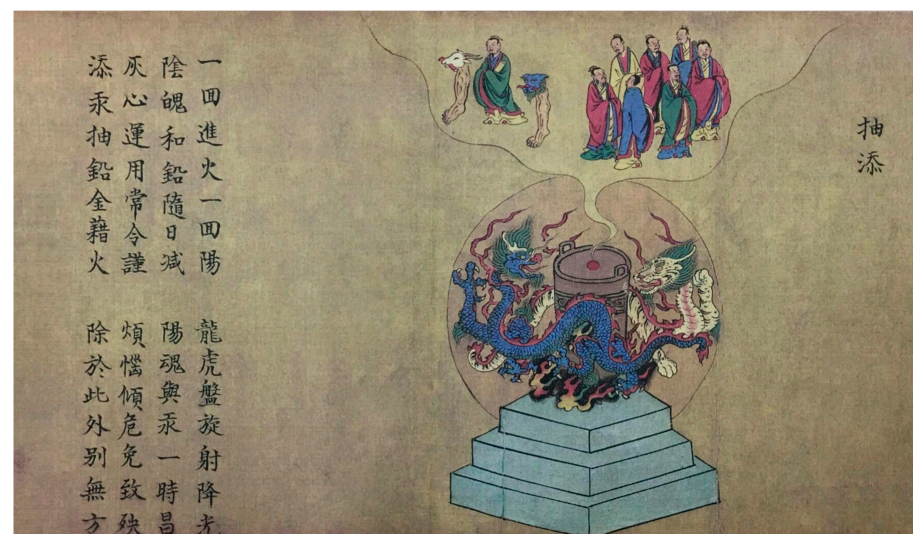 抽添
一囬進火一囬陽 龍虎盤旋射降光
陰魄和鉛隨日减 陽魂與汞一時昌
灰心運用常令謹 煩惱傾危免致殃
添汞抽鉛金藉火 除於此外别無方